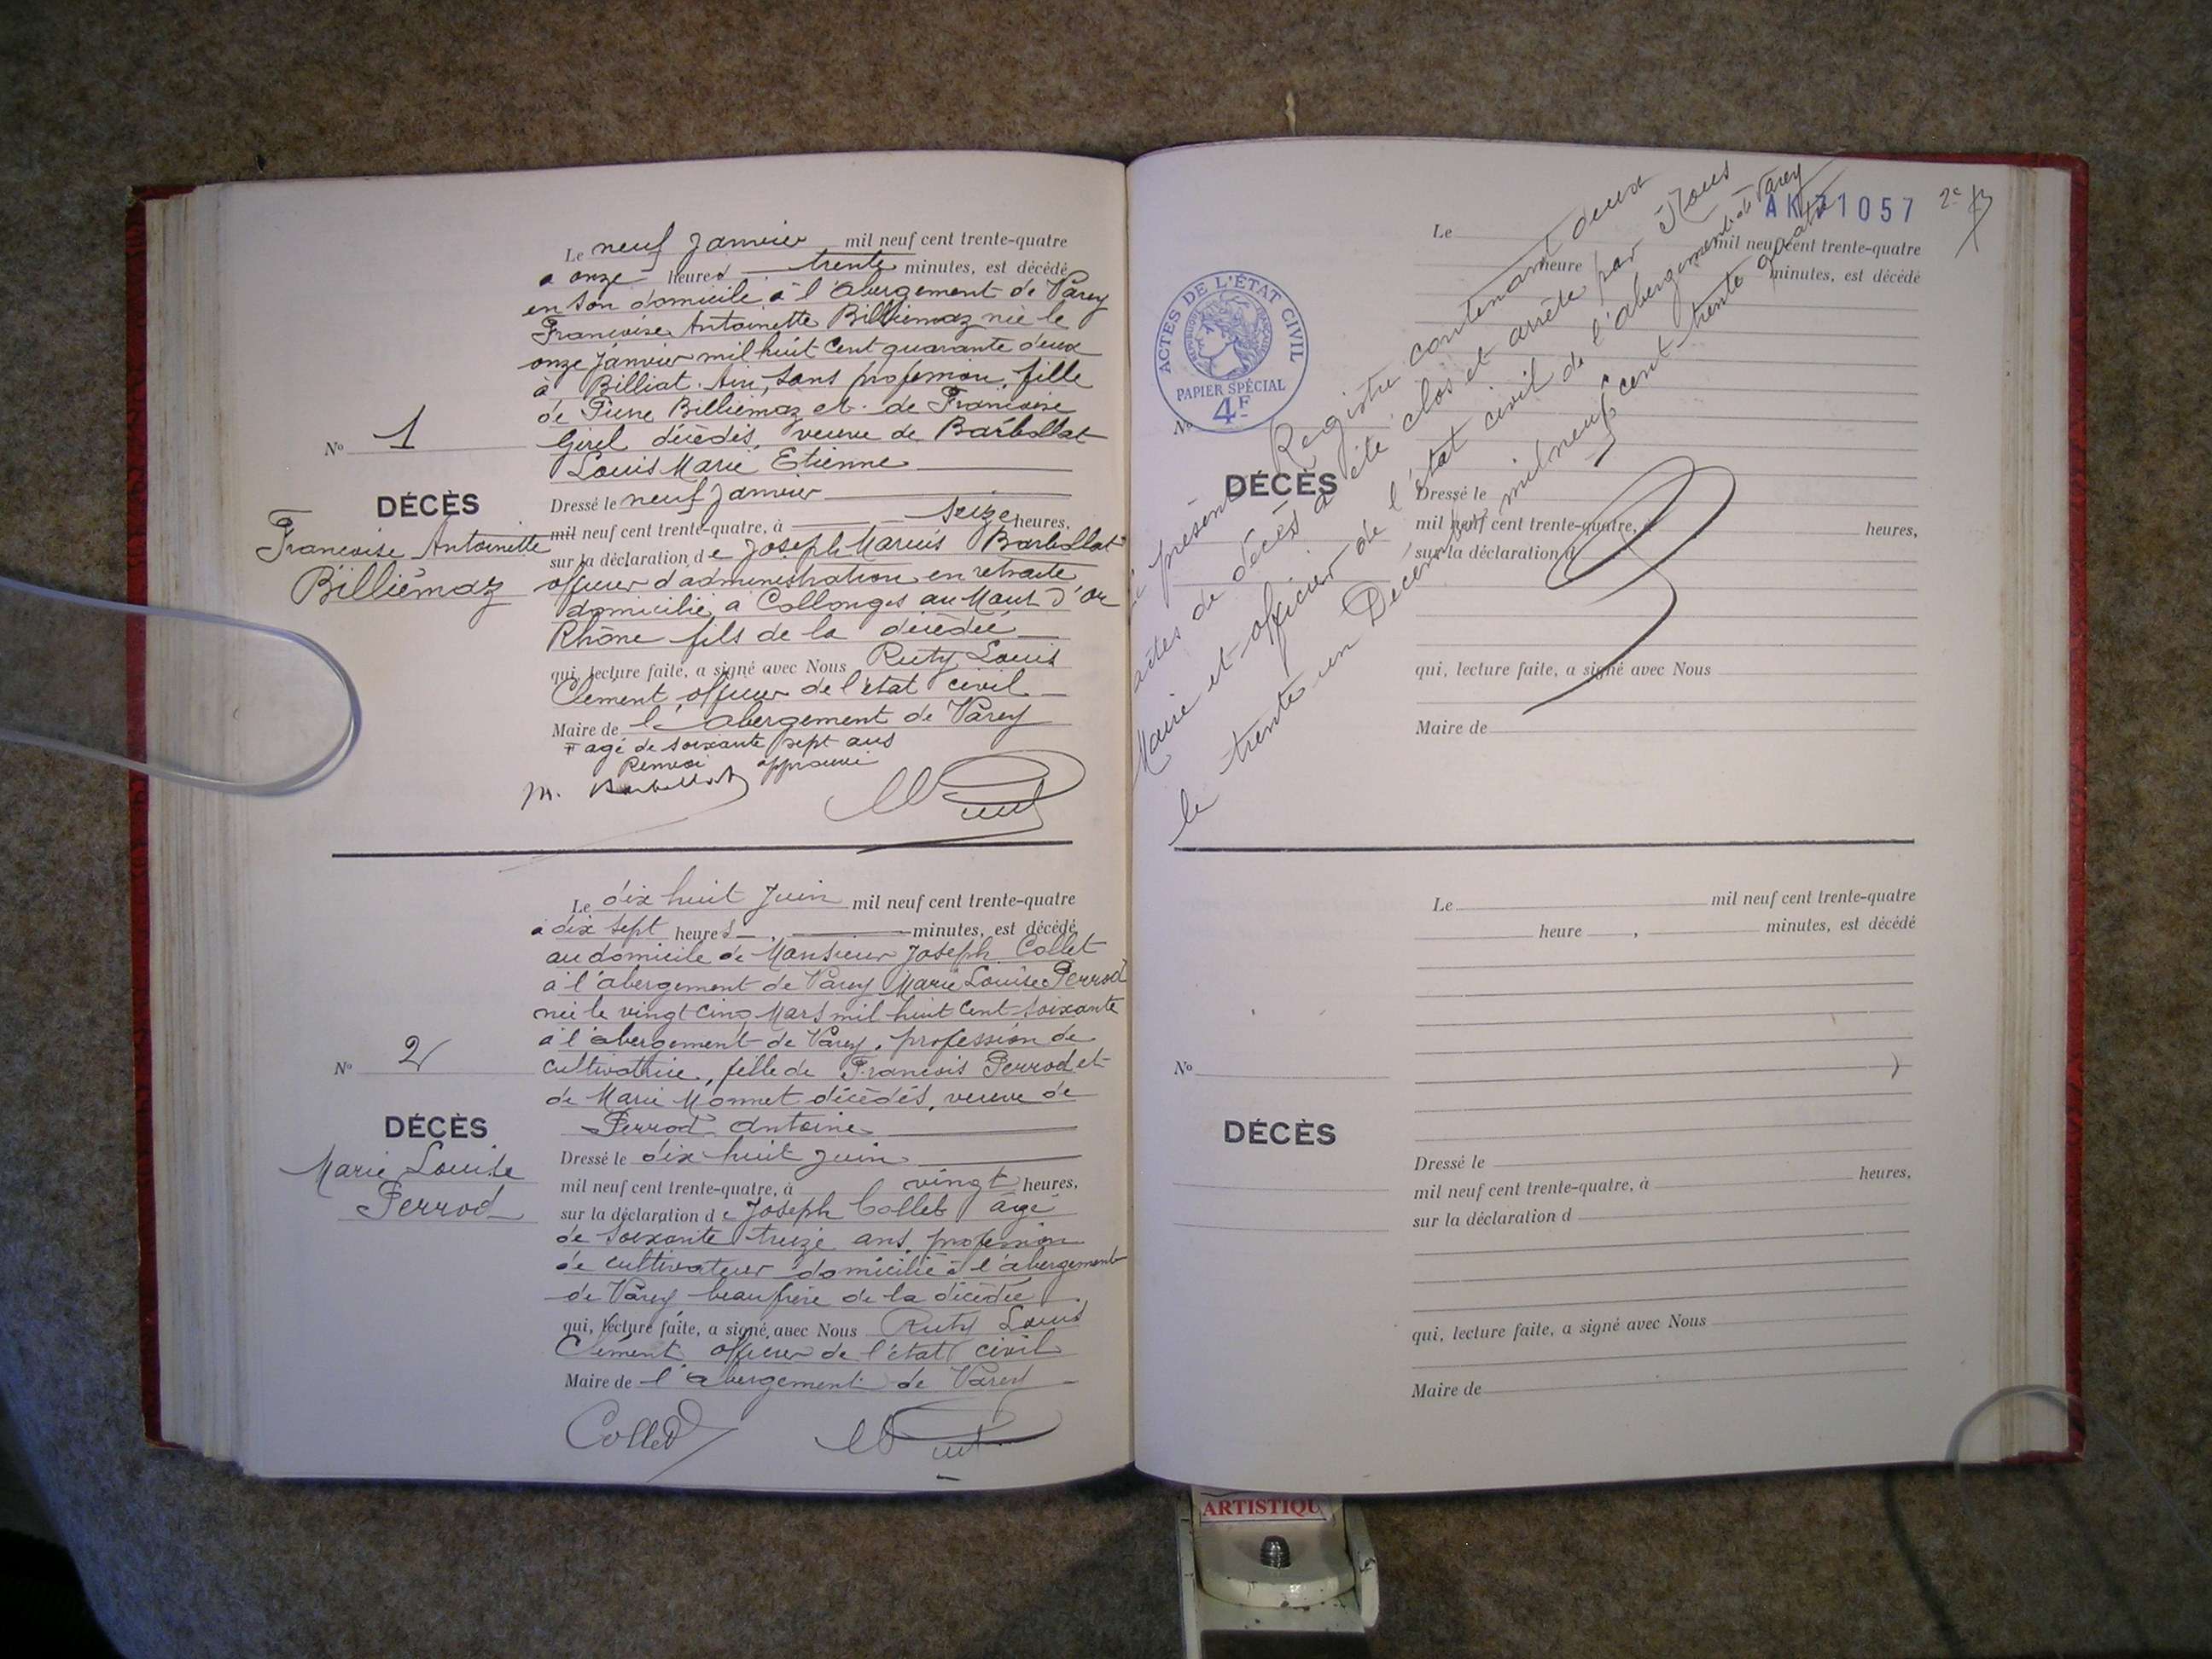 Le neuf Janvier mil neuf cent trente-quatre
à onze heures trente minutes, est décédé
en son domicile à l'abergement de Varey
Françoise Antoinette Billiémaz née le
onze Janvier mil huit cent quarante deux
à Billiat. Ain, sans profession, fille
de Pierre Billiémaz et de Françoise
Girel décédés, veuve de Barbollat
Louis Marie Etienne
Nº 1
DÉCÈS
Françoise Antoinette
Billiémaz
Dressé le neuf Janvier
mil neuf cent trente-quatre, à seize heures,
sur la déclaration de Joseph Marius Barbollat
officier d'administration en retraite
domicilié à Collonges au Mont d'Or
Rhône fils de la décédée
qui, lecture faite, a signé avec Nous Ruty Louis
Clément, officier de l'état civil
Maire de l'abergement de Varey
agé de soixante sept ans
Renvoi approuvé
M. Barbollat
Le dix huit Juin mil neuf cent trente-quatre
à dix sept heures, minutes, est décédé
au domicile de Monsieur Joseph Collet
à l'abergement de Varey Marie Louise Perrod
née le vingt cinq Mars mil huit cent soixante
à l'abergement de Varey, profession de
cultivatrice, fille de François Perrod et
de Marie Monnet décédés, veuve de
Perrod Antoine
Nº 2
DÉCÈS
Marie Louise
Perrod
Dressé le dix huit Juin
mil neuf cent trente-quatre, à vingt heures,
sur la déclaration de Joseph Collet âgé
de soixante treize ans, profession
de cultivateur domicilié à l'abergement
de Varey beau frère de la décédée
qui, lecture faite, a signé avec Nous Ruty Louis
Clément officier de l'état civil
Maire de l'abergement de Varey
Collet
AK 71057
2e
ACTES DE L'ÉTAT CIVIL
RÉPUBLIQUE FRANÇAISE
PAPIER SPÉCIAL
4F
Le mil neuf cent trente-quatre
heure minutes, est décédé
Nº
DÉCÈS
Dressé le
mil neuf cent trente-quatre, à heures,
sur la déclaration d
qui, lecture faite, a signé avec Nous
Maire de
Le présent Registre contenant deux
actes de décès a été clos et arrêté par Nous
Maire et officier de l'état civil de l'abergement de Varey
le trente un Décembre mil neuf cent trente quatre
Le mil neuf cent trente-quatre
heure , minutes, est décédé
Nº
DÉCÈS
Dressé le
mil neuf cent trente-quatre, à heures,
sur la déclaration d
qui, lecture faite, a signé avec Nous
Maire de
ARTISTIQU